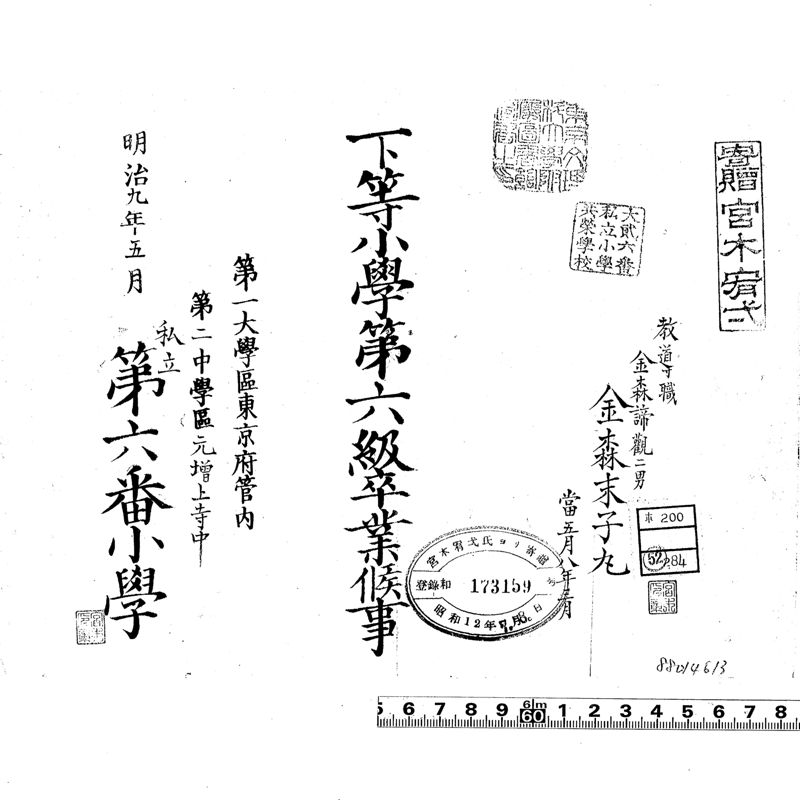 寄贈宮木宥弌
教導職
金森諦觀二男
金森末子丸
當五月八年二月
大貳六番
私立小學
共榮學校
下等小學第六級卒業候事
第一大學區東京府管内
第二中學區元增上寺中
私立
第六番小學
明治九年五月
宮木宥弌氏ヨリ寄贈
登錄和 173159
昭和12年7月8日
ホ 200
52 984
88014613
5 6 7 8 9 6m 60 1 2 3 4 5 6 7 8